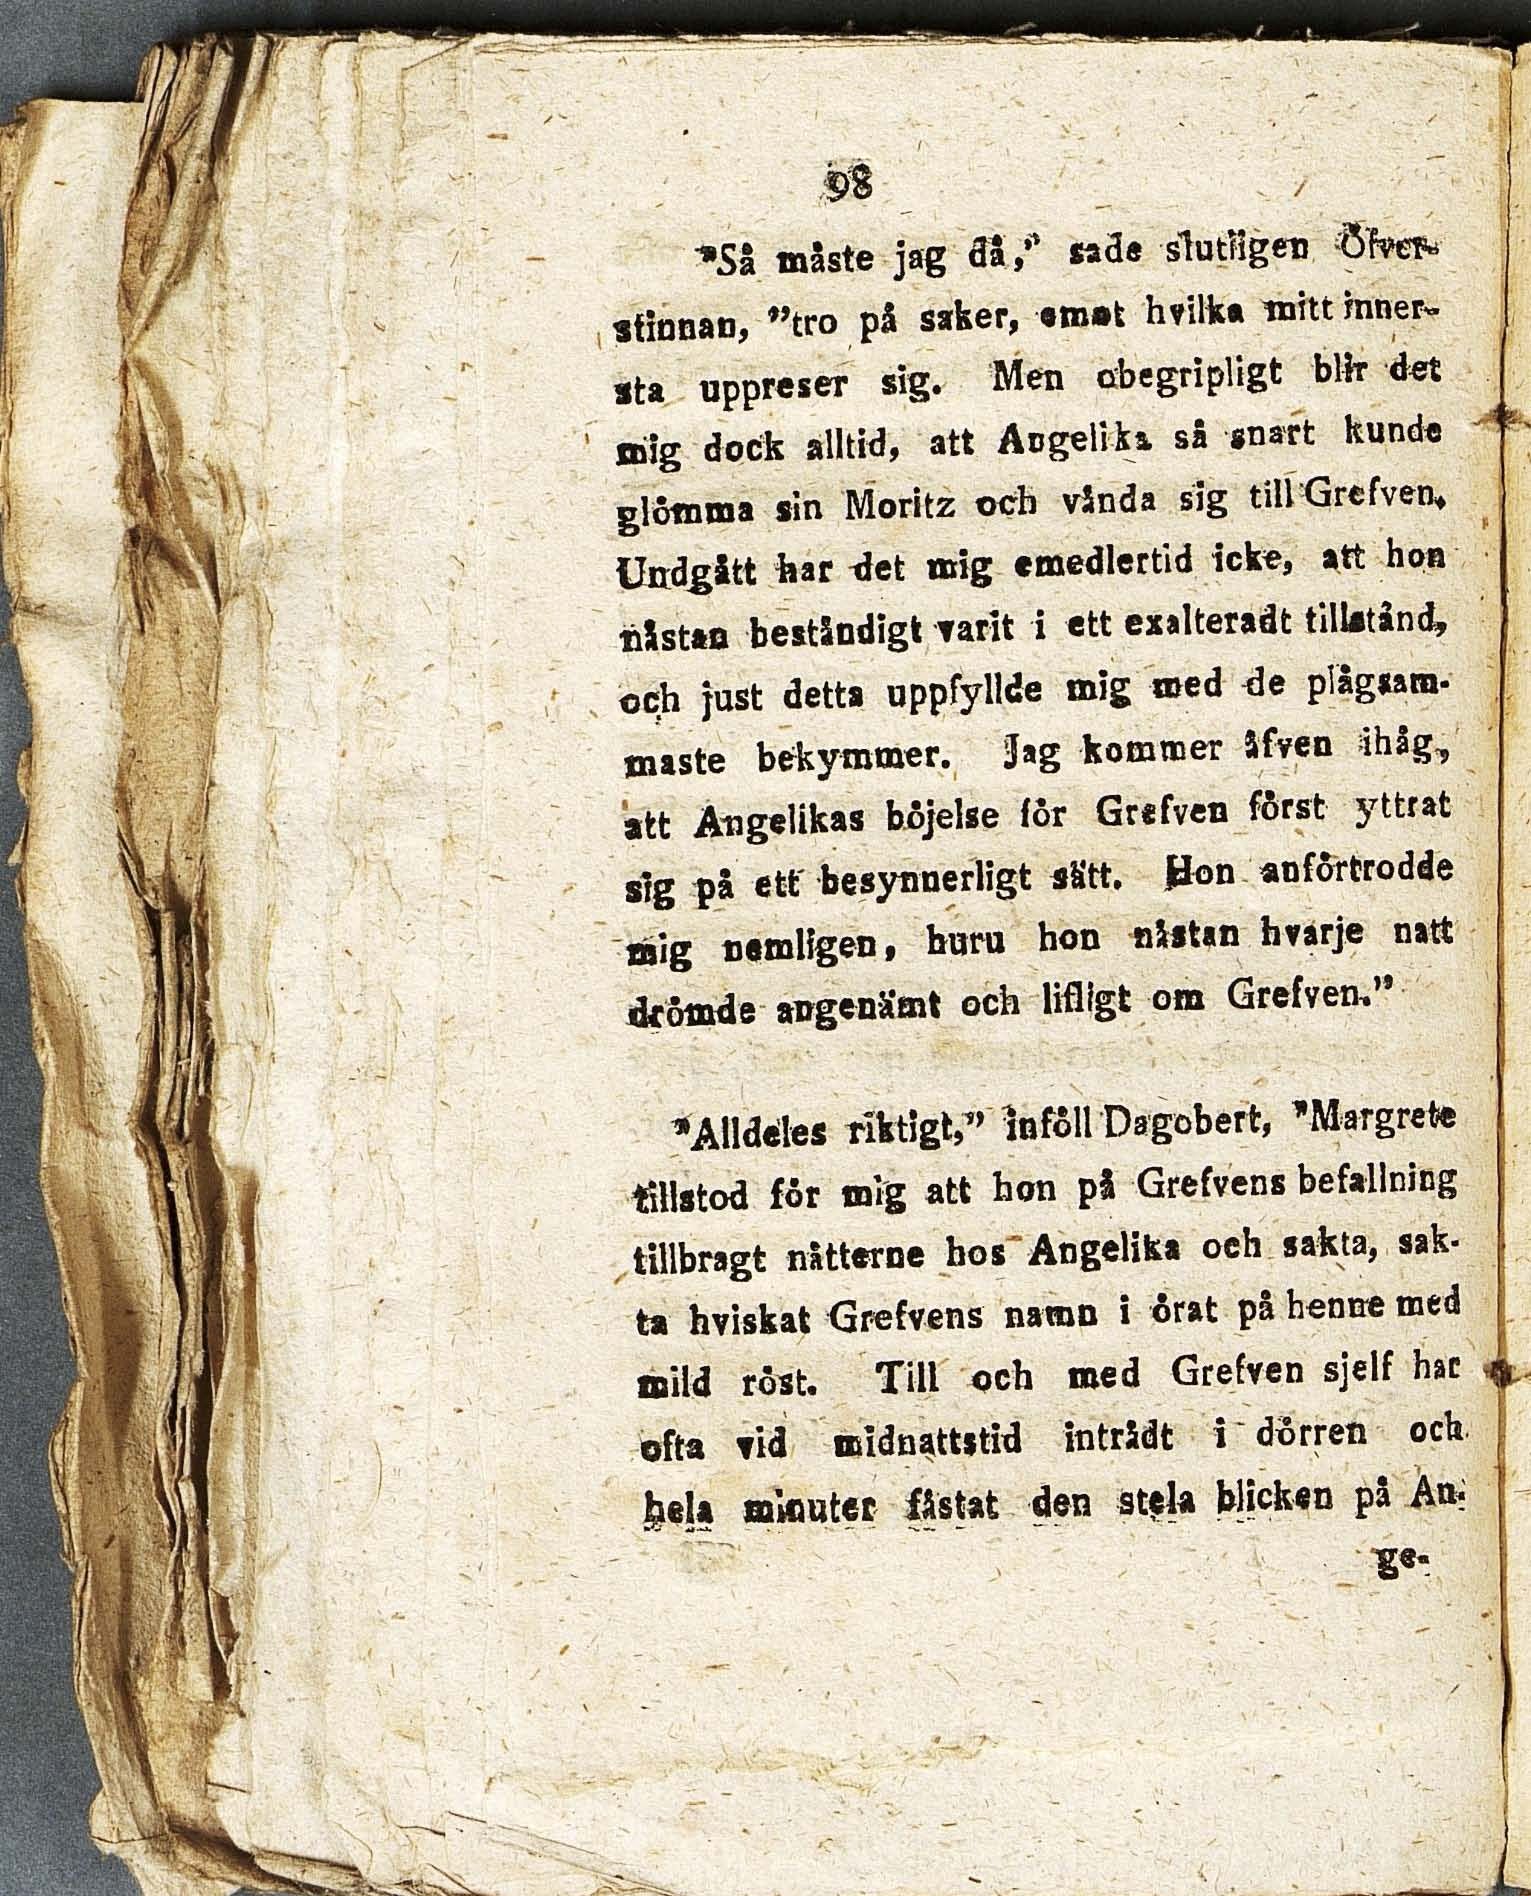 98
"Så måste jag då," sade slutligen Öfver-
stinnan, "tro på saker, emot hvilka mitt inner-
sta uppreser sig. Men obegripligt blir det
mig dock alltid, att Angelika så snart kunde
glömma sin Moritz och vånda sig till Grefven.
Undgått har det mig emedlertid icke, att hon
nåstan beståndigt varit i ett exalteradt tillstånd,
och just detta uppfyllde mig med de plågsam-
maste bekymmer. Jag kommer åfven ihåg,
att Angelikas böjelse för Grefven först yttrat
sig på ett besynnerligt sått. Hon anförtrodde
mig nemligen, huru hon nåstan hvarje natt
drömde angenämt och lifligt om Grefven."
"Alldeles riktigt," inföll Dagobert, "Margrete
tillstod för mig att hon på Grefvens befallning
tillbragt nåtterne hos Angelika och sakta, sak-
ta hviskat Grefvens namn i örat på henne med
mild röst. Till och med Grefven sjelf har
ofta vid midnattstid intrådt i dörren och
hela minuter fåstat den stela blicken på An-
ge-